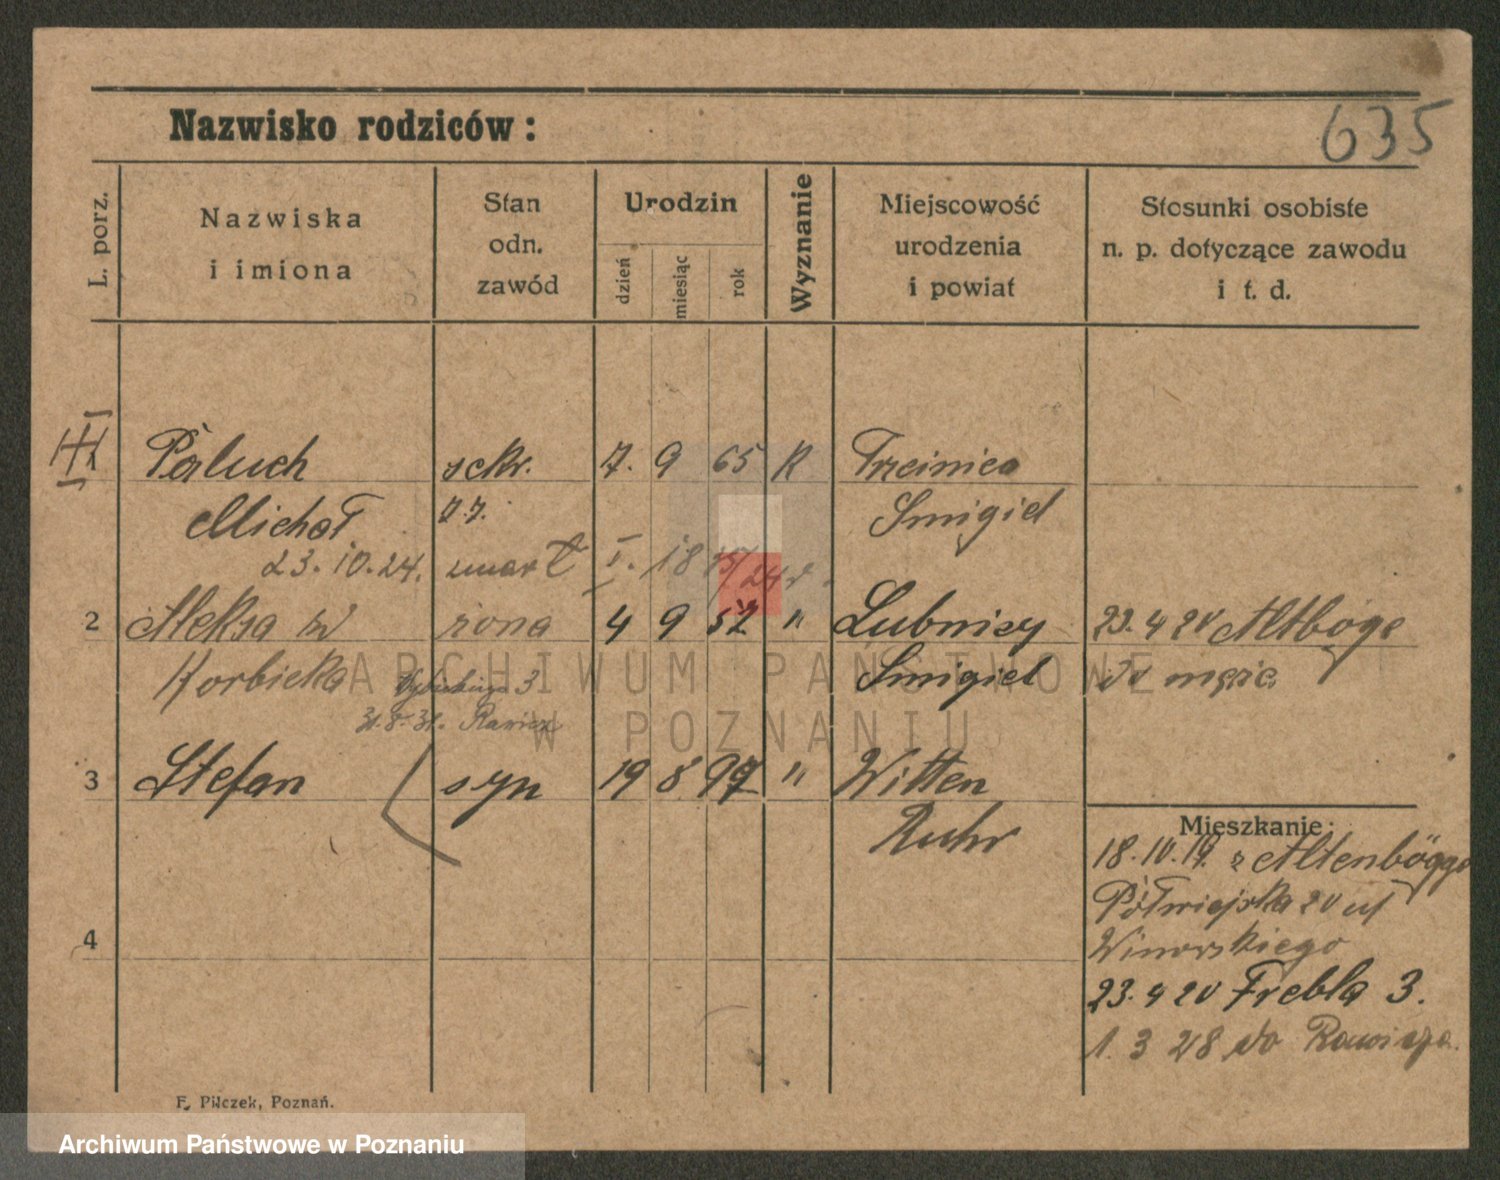 635
Nazwisko rodziców:
L. porz.
Nazwiska
i imiona
Stan
odn.
zawód
Urodzin
dzień
miesiąc
rok
Wyznanie
Miejscowość
urodzenia
i powiat
Stosunki osobiste
n. p. dotyczące zawodu
i t. d.
Paluch sekr. 7. 9 65 K Trzcinica
Michał Smigiel
23.10.24. umarł I. 18
2 żona 4 9 " Lubnicy 23.4 20 Altböge
Smigiel do męża
31.8.31. Rawicz
ARCHIWUM PAŃSTWOWE
W POZNANIU
3 Stefan syn 19 8 97 " Witten
Ruhr
Mieszkanie:
18.10.19. z Altenbögge
Półwiejska 20 u/
23.4 20 Frebla 3.
4
1. 3 28 do Rawicza.
F. Pilczek, Poznań.
Archiwum Państwowe w Poznaniu